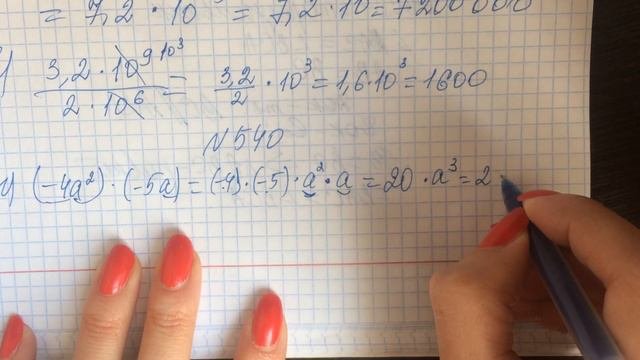 = 7,2 · 10 = 7,2 · 10 = 7200000
) 3,2 · 10⁹ 10³ / 2 · 10⁶ = 3,2/2 · 10³ = 1,6 · 10³ = 1600
N 540
(-4a²) · (-5a) = (-4) · (-5) · a² · a = 20 · a³ = 2